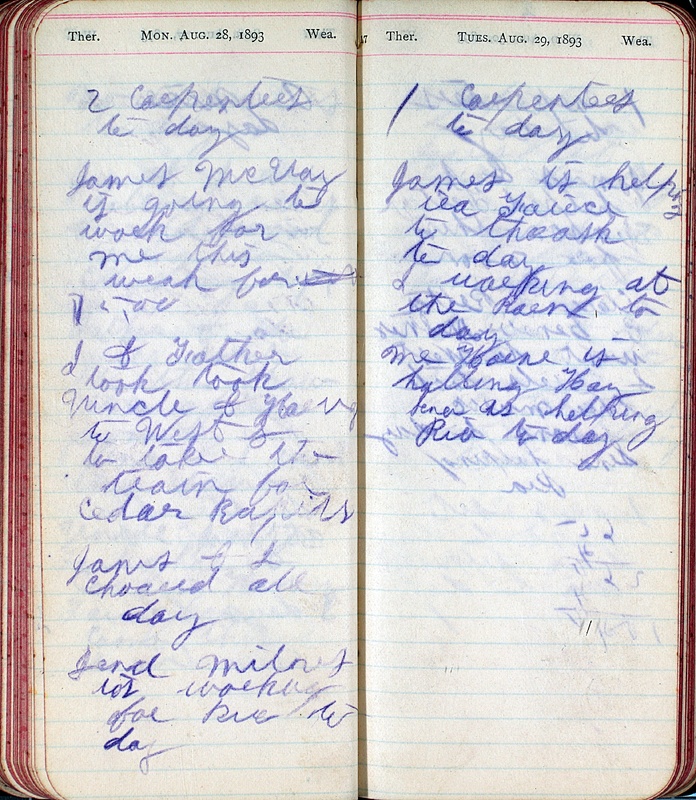 Ther. MON. AUG. 28, 1893 Wea.
2 Carpenters
to day
James McVay
is going to
work for
me this
weak for
I & Father
took took
Uncle & Harry
to West
to take the
train for
Cedar Rapids
James & I
choared all
day
is working
for to
day
Ther. TUES. AUG. 29, 1893 Wea.
1 Carpenters
to day
James is helping
to thrash
to day
I working at
the barn to
day
is
Hay
is helping
to day